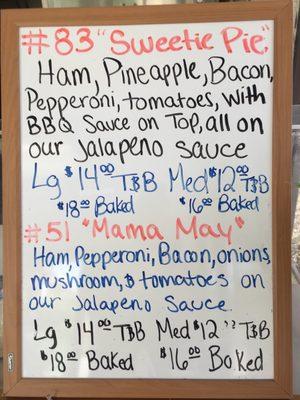 #83 "Sweetie Pie"
Ham, Pineapple, Bacon,
Pepperoni, tomatoes, with
BBQ Sauce on Top, all on
our Jalapeño sauce
Lg $14⁰⁰ T&B Med $12⁰⁰ T&B
$18⁰⁰ Baked $16⁰⁰ Baked
#51 "Mama May"
Ham, Pepperoni, Bacon, onions,
mushroom, & tomatoes on
our Jalapeno Sauce.
Lg $14⁰⁰ T&B Med $12⁰⁰ T&B
$18⁰⁰ Baked $16⁰⁰ Baked